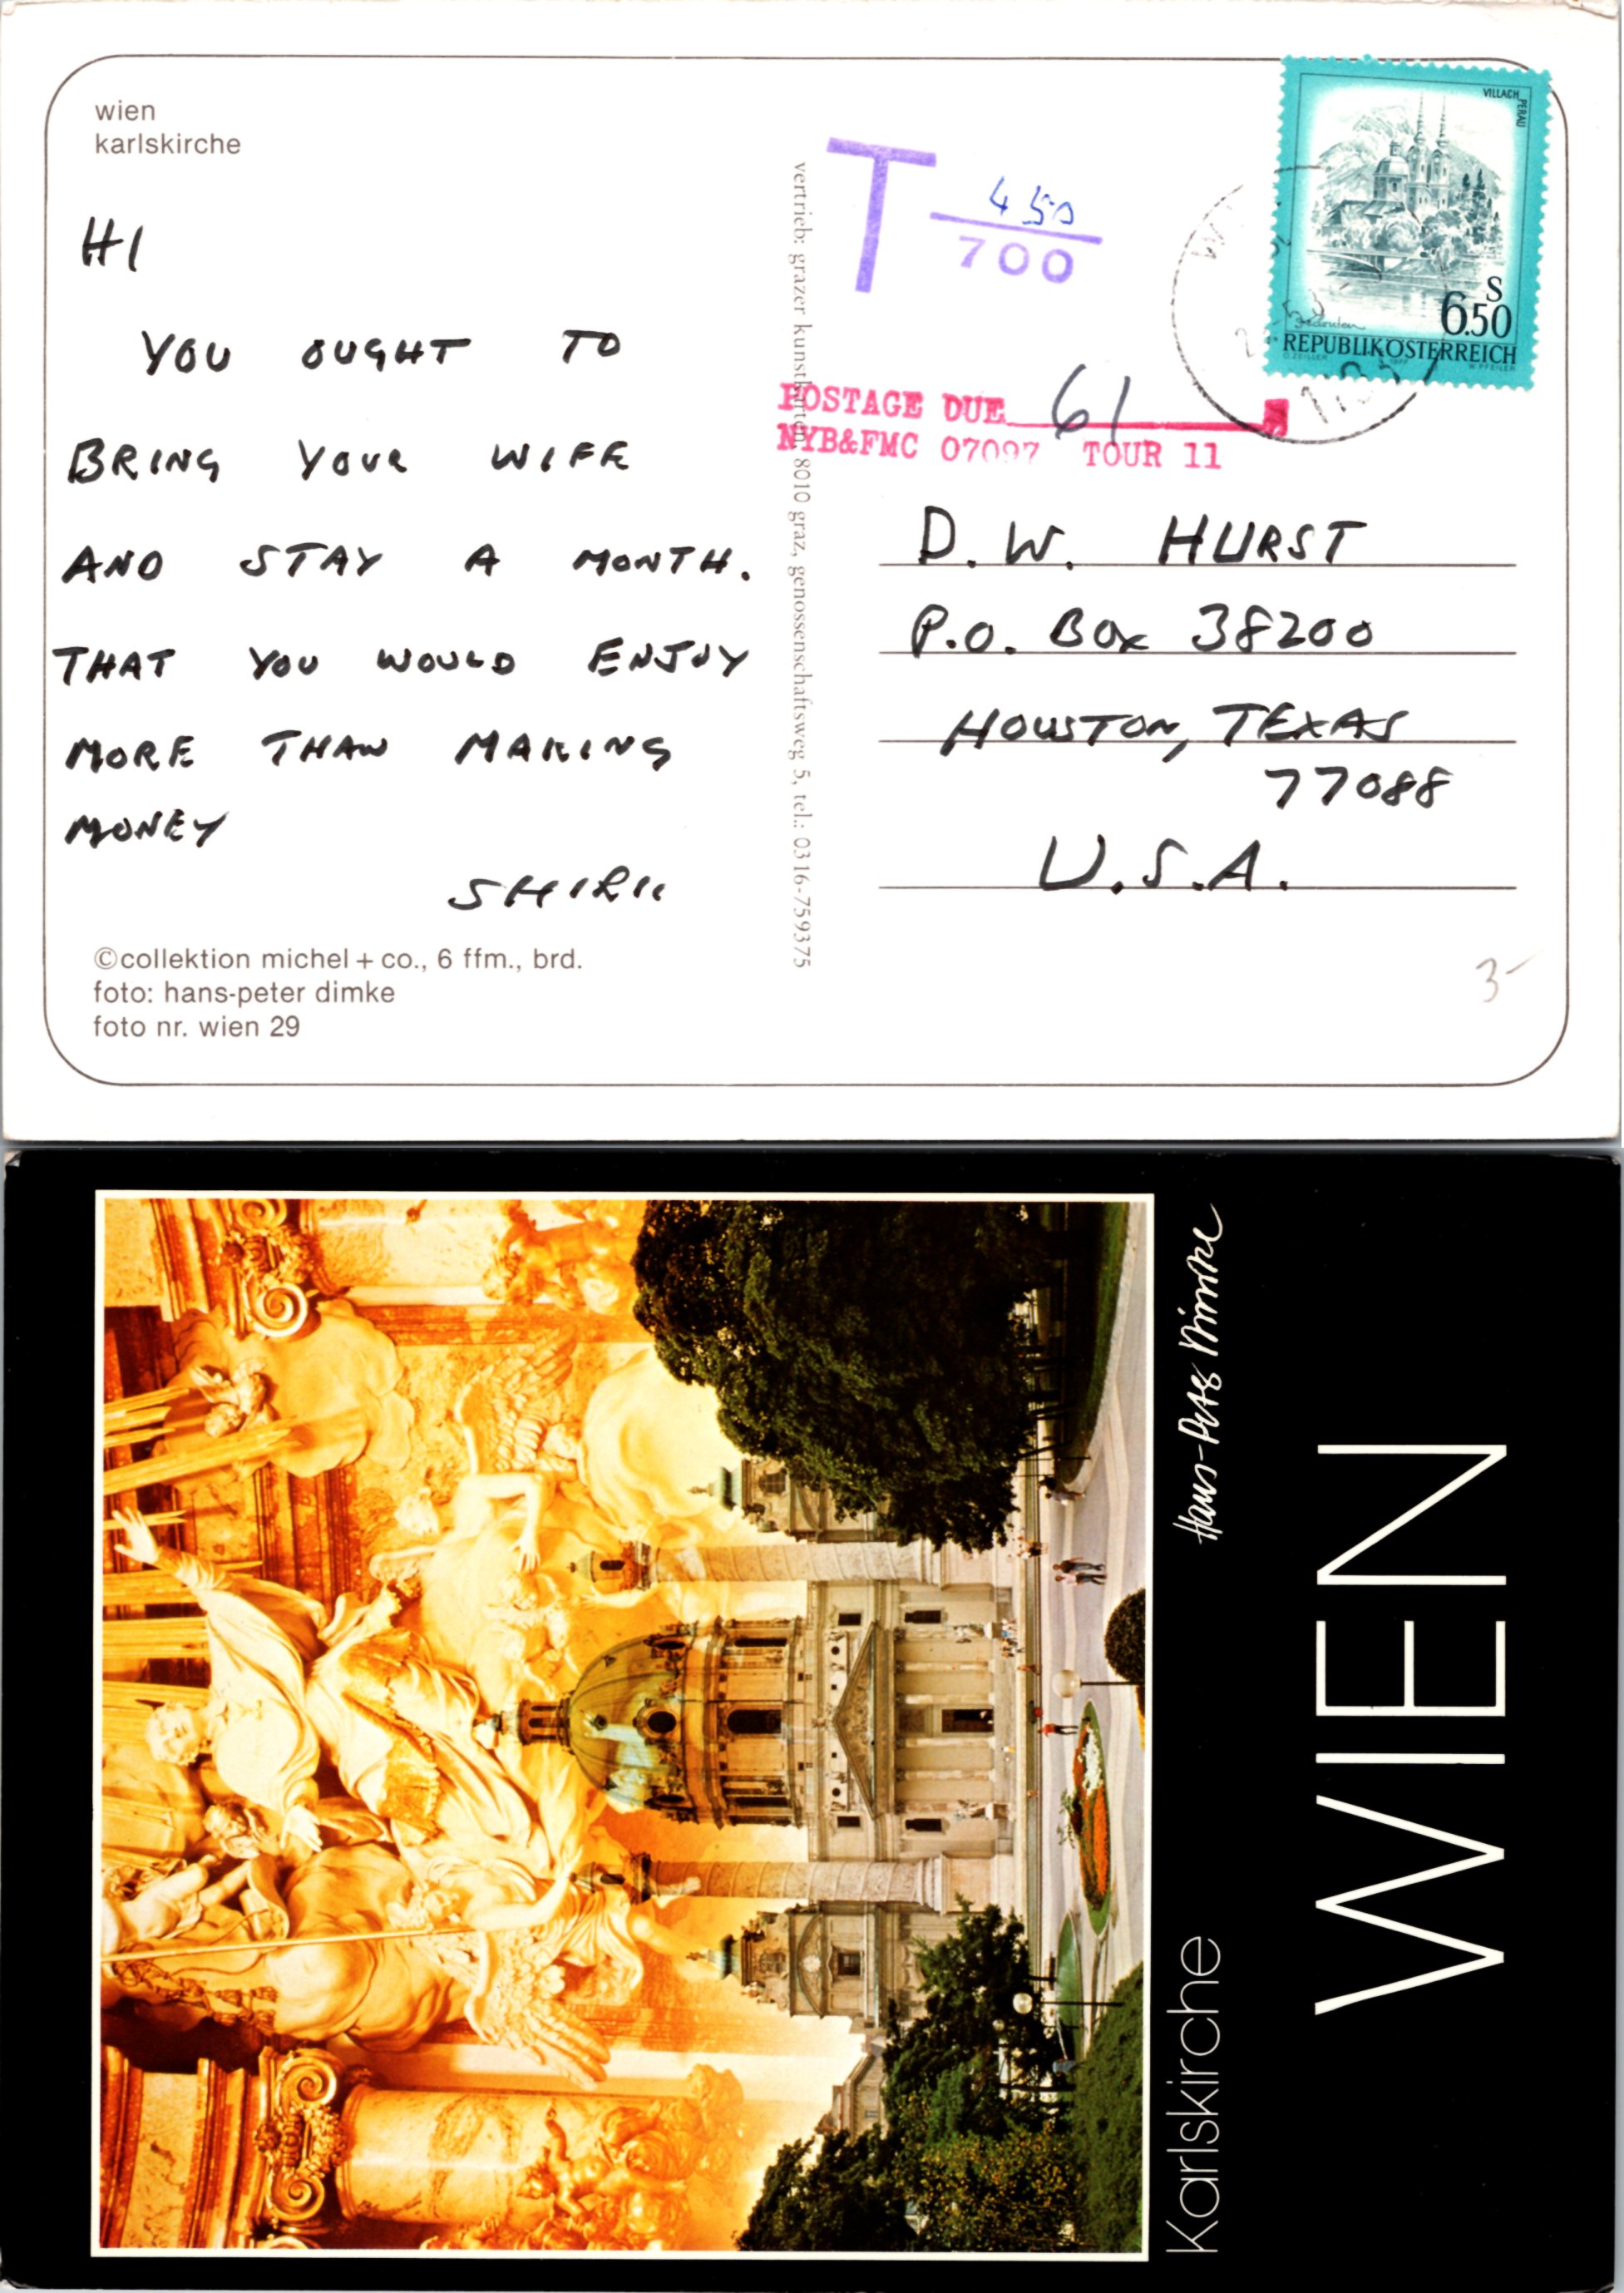 wien
karlskirche
HI
YOU OUGHT TO
BRING YOUR WIFE
AND STAY A MONTH.
THAT YOU WOULD ENJOY
MORE THAN MAKING
MONEY
©collektion michel + co., 6 ffm., brd.
foto: hans-peter dimke
foto nr. wien 29
vertrieb: grazer kunstkarten, 8010 graz, genossenschaftsweg 5, tel.: 0316-759375
T 450
700
VILLACH PERAU
S
6.50
REPUBLIK ÖSTERREICH
POSTAGE DUE 61
NYB&FMC 07097 TOUR 11
D. W. HURST
P.O. BOX 38200
HOUSTON, TEXAS
77088
U.S.A.
3-
Hans-Peter Dimke
Karlskirche
WIEN